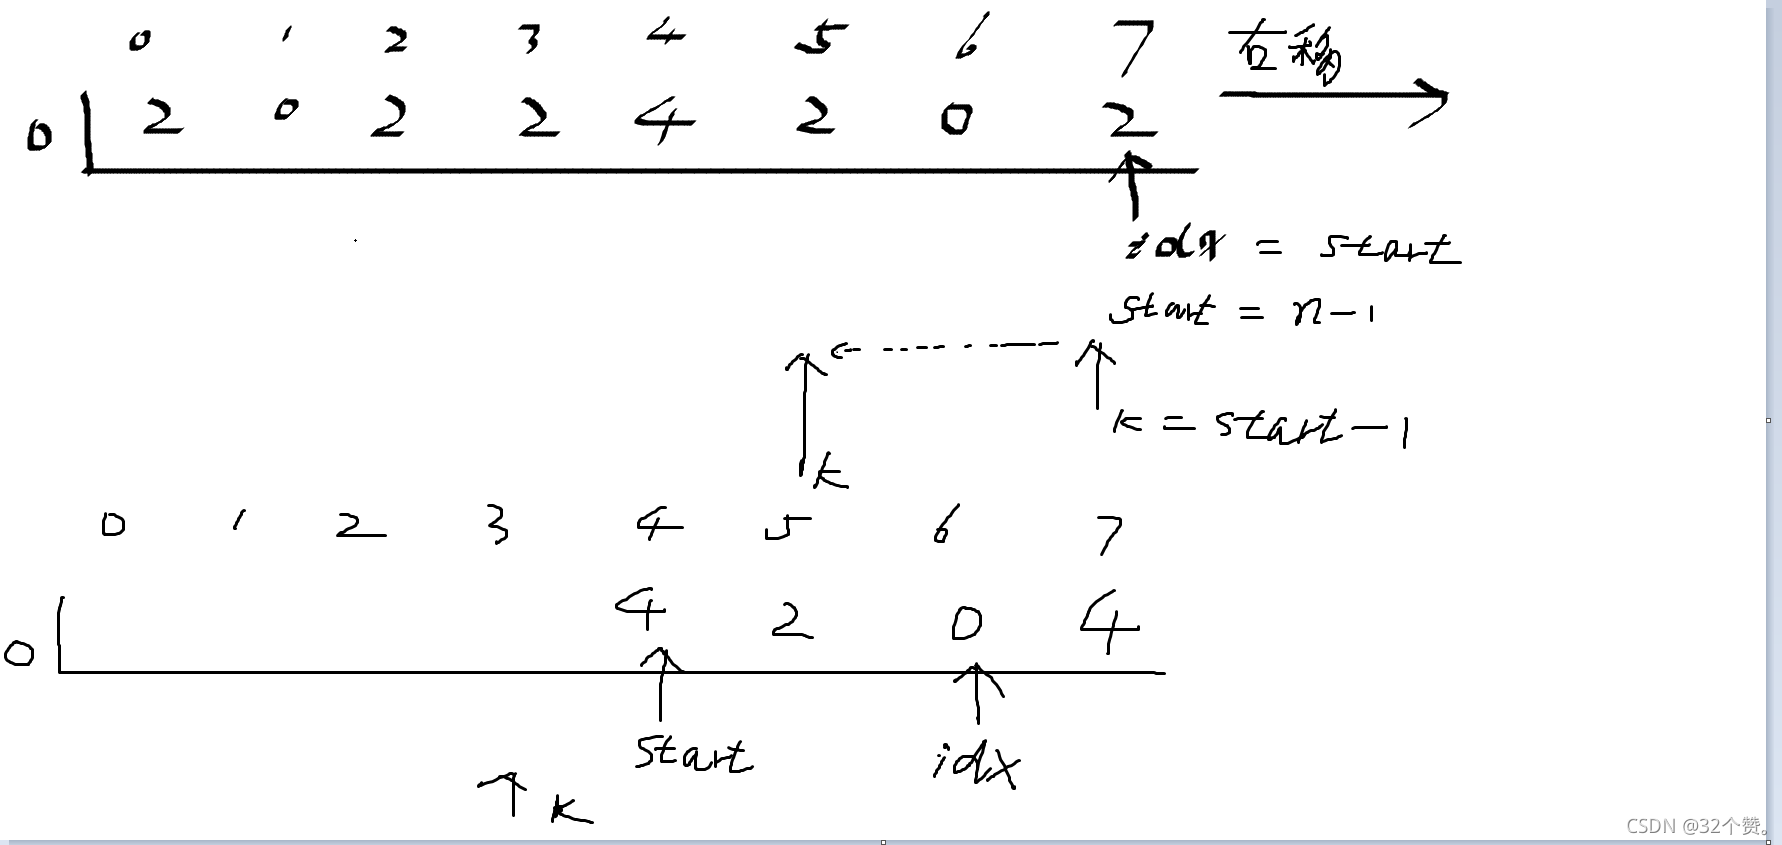 0 1 2 3 4 5 6 7 右移
0 2 0 2 2 4 2 0 2
idx = start
start = n-1
k = start-1
k
0 1 2 3 4 5 6 7
0 4 2 0 4
start idx
k
CSDN @32个赞。